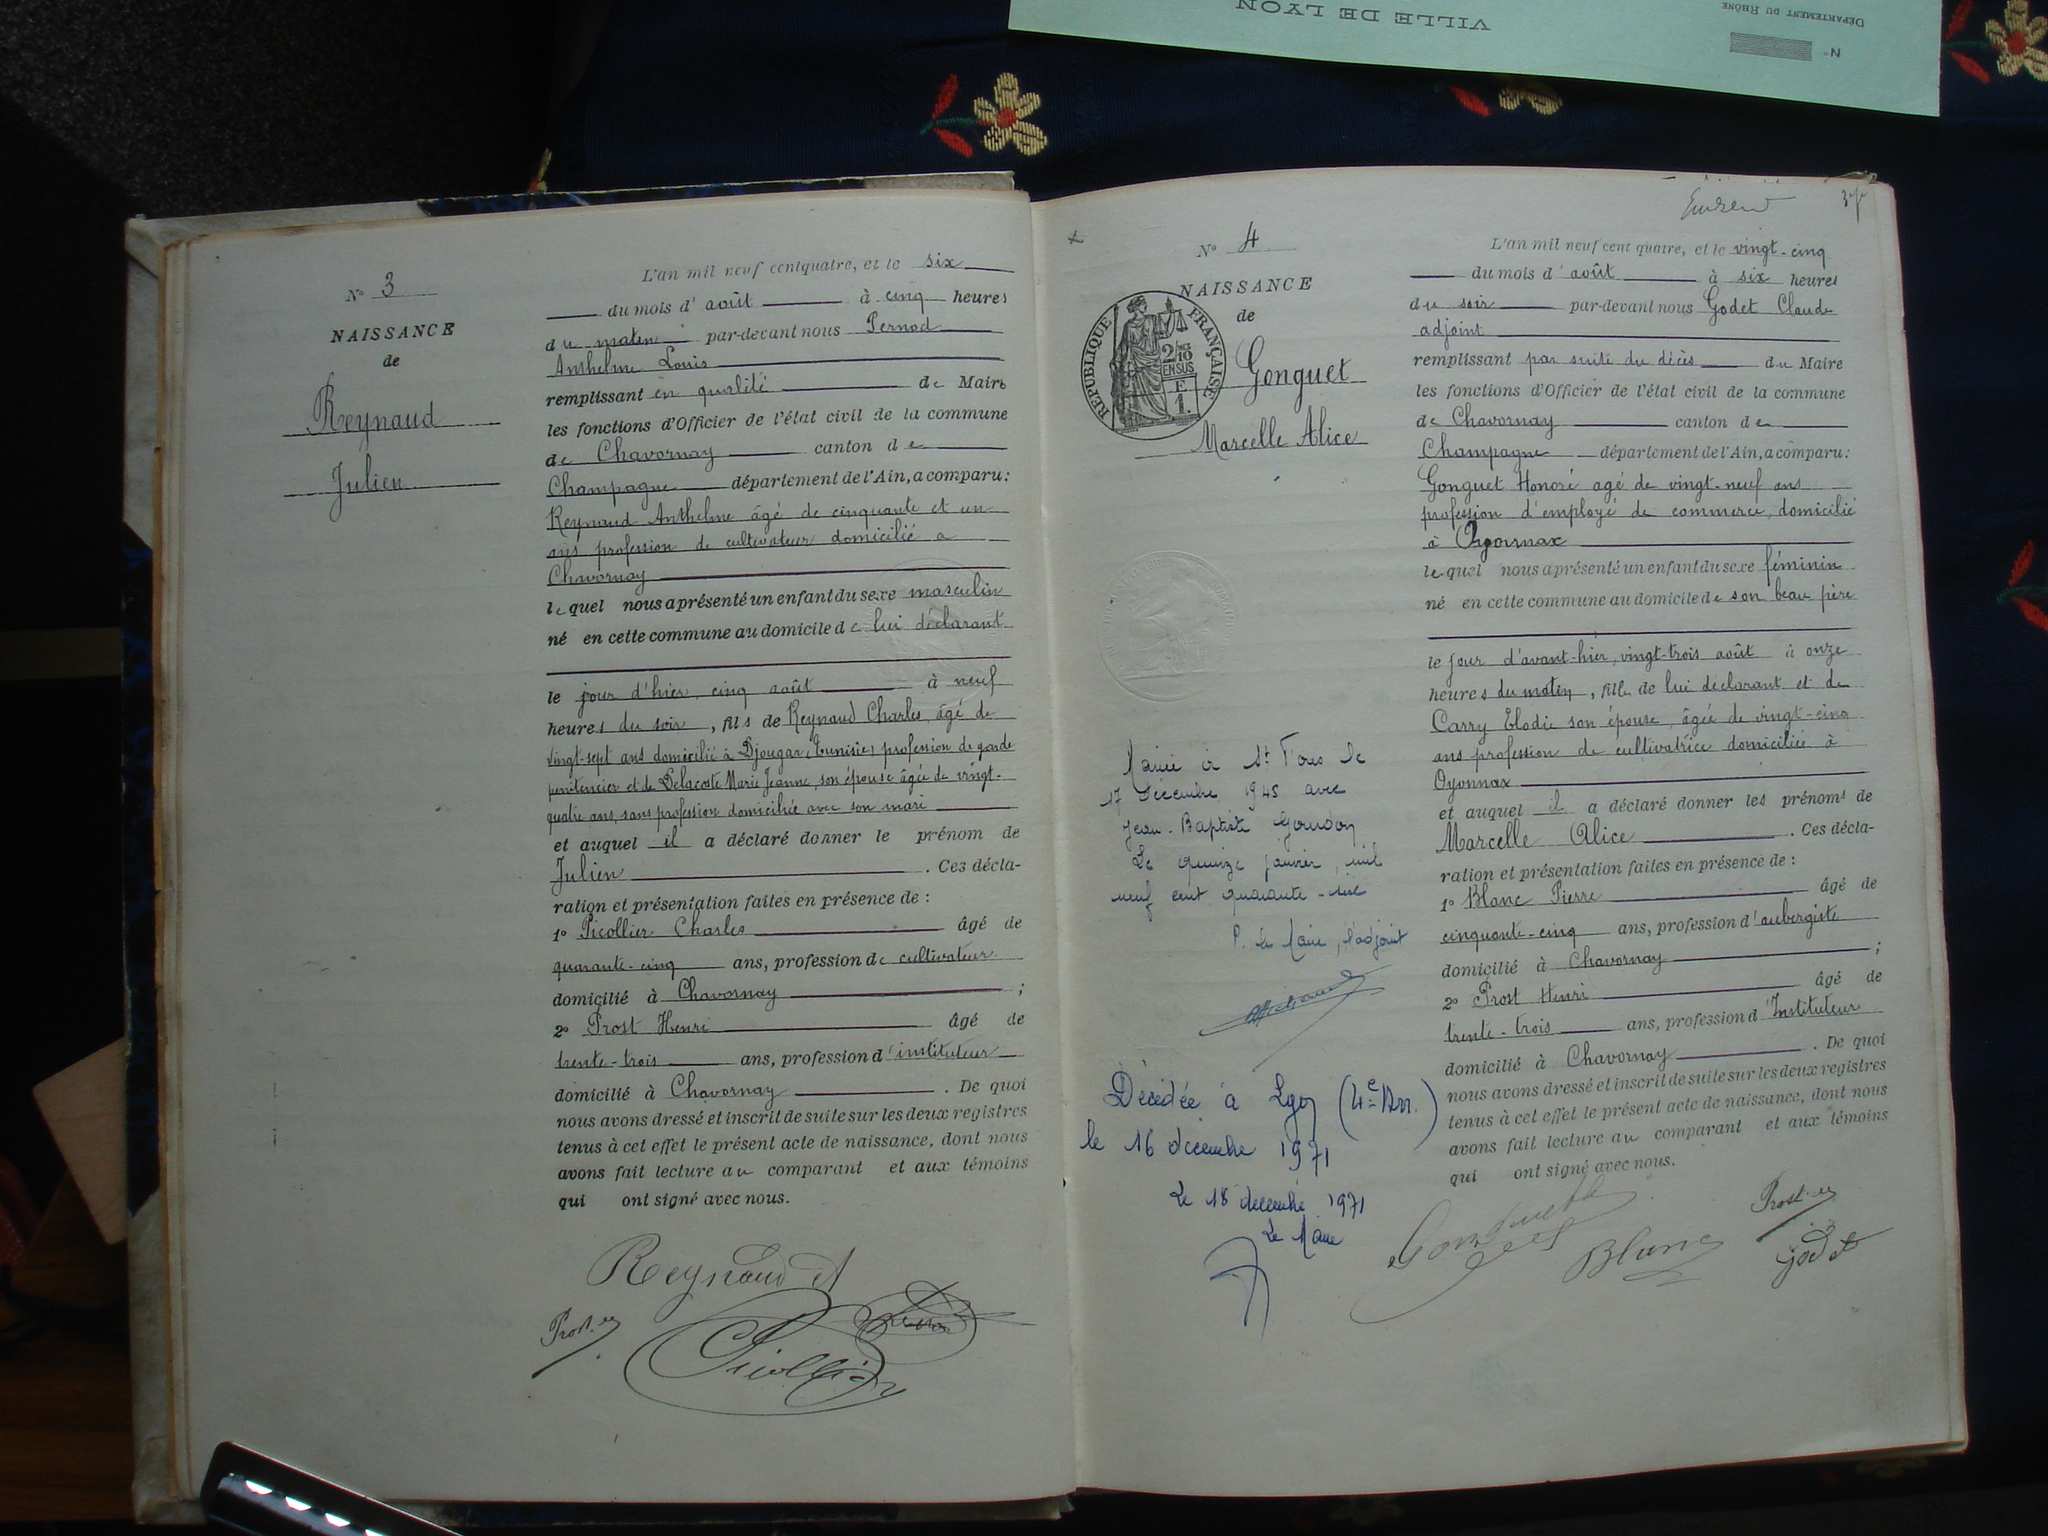 VILLE DE LYON
DÉPARTEMENT DU RHÔNE
N°
N° 3
NAISSANCE
de
Reynaud
Julien
L'an mil neuf cent quatre, et le six
du mois d'août à cinq heures
du matin par-devant nous Pernod
Anthelme Louis
remplissant en qualité de Maire
les fonctions d'Officier de l'état civil de la commune
de Chavornay canton de
Champagne département de l'Ain, a comparu :
Reynaud Anthelme âgé de cinquante et un
ans profession de cultivateur domicilié a
Chavornay
lequel nous a présenté un enfant du sexe masculin
né en cette commune au domicile de lui déclarant
le jour d'hier, cinq août à neuf
heures du soir, fils de Reynaud Charles, âgé de
vingt-sept ans domicilié à Djougar (Tunisie) profession de garde
penitencier et de Delacoste Marie Jeanne, son épouse âgée de vingt-
quatre ans, sans profession domiciliée avec son mari
et auquel il a déclaré donner le prénom de
Julien . Ces décla-
ration et présentation faites en présence de :
1° Picollier Charles âgé de
quarante-cinq ans, profession de cultivateur
domicilié à Chavornay ;
2° Prost Henri âgé de
trente-trois ans, profession d'instituteur
domicilié à Chavornay . De quoi
nous avons dressé et inscrit de suite sur les deux registres
tenus à cet effet le présent acte de naissance, dont nous
avons fait lecture au comparant et aux témoins
qui ont signé avec nous.
Reynaud
Prost
Picollier
N° 4
NAISSANCE
de
RÉPUBLIQUE FRANÇAISE
2/10 EN SUS
E
1.
Gonguet
Marcelle Alice
Marié à St Fons le
17 décembre 1945 avec
Jean-Baptiste Gourdon
Le quinze janvier, mil
neuf cent quarante-six
P. le Maire, l'adjoint
Décédée à Lyon (4e Arr.)
le 16 décembre 1971
Le 18 décembre 1971
Le Maire
L'an mil neuf cent quatre, et le vingt-cinq
du mois d'août à six heures
du soir par-devant nous Godet Claude
adjoint
remplissant par suite du décès du Maire
les fonctions d'Officier de l'état civil de la commune
de Chavornay canton de
Champagne département de l'Ain, a comparu :
Gonguet Honoré agé de vingt-neuf ans
profession d'employé de commerce, domicilié
à Oyonnax
lequel nous a présenté un enfant du sexe féminin
né en cette commune au domicile de son beau père
le jour d'avant-hier, vingt-trois août à onze
heures du matin, fille de lui déclarant et de
Carry Elodie son épouse, âgée de vingt-cinq
ans profession de cultivatrice domiciliée à
Oyonnax
et auquel il a déclaré donner les prénoms de
Marcelle Alice . Ces décla-
ration et présentation faites en présence de :
1° Blanc Pierre âgé de
cinquante-cinq ans, profession d'aubergiste
domicilié à Chavornay ;
2° Prost Henri âgé de
trente-trois ans, profession d'Instituteur
domicilié à Chavornay . De quoi
nous avons dressé et inscrit de suite sur les deux registres
tenus à cet effet le présent acte de naissance, dont nous
avons fait lecture au comparant et aux témoins
qui ont signé avec nous.
Gonguet
Blanc
Prost
Godet